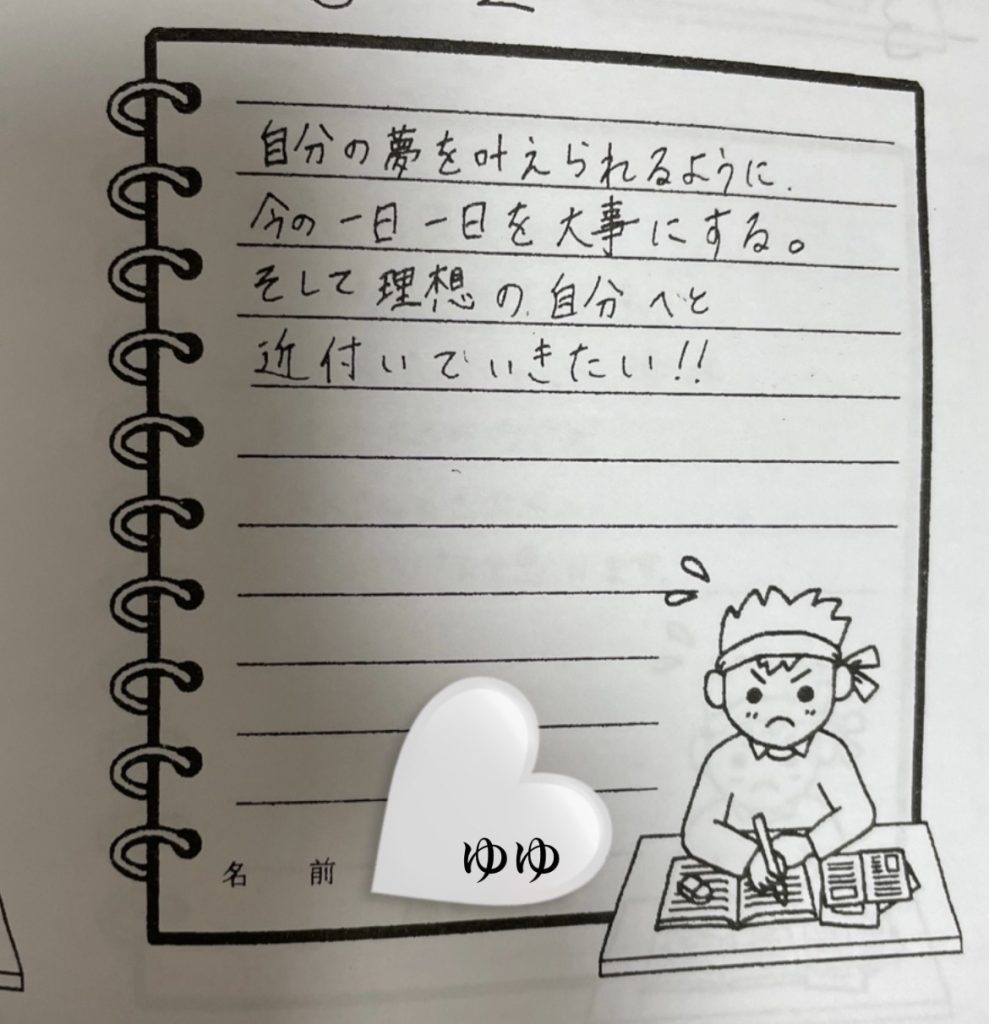 自分の夢を叶えられるように、
今の一日一日を大事にする。
そして理想の自分へと
近付いていきたい!!
名前 ゆゆ